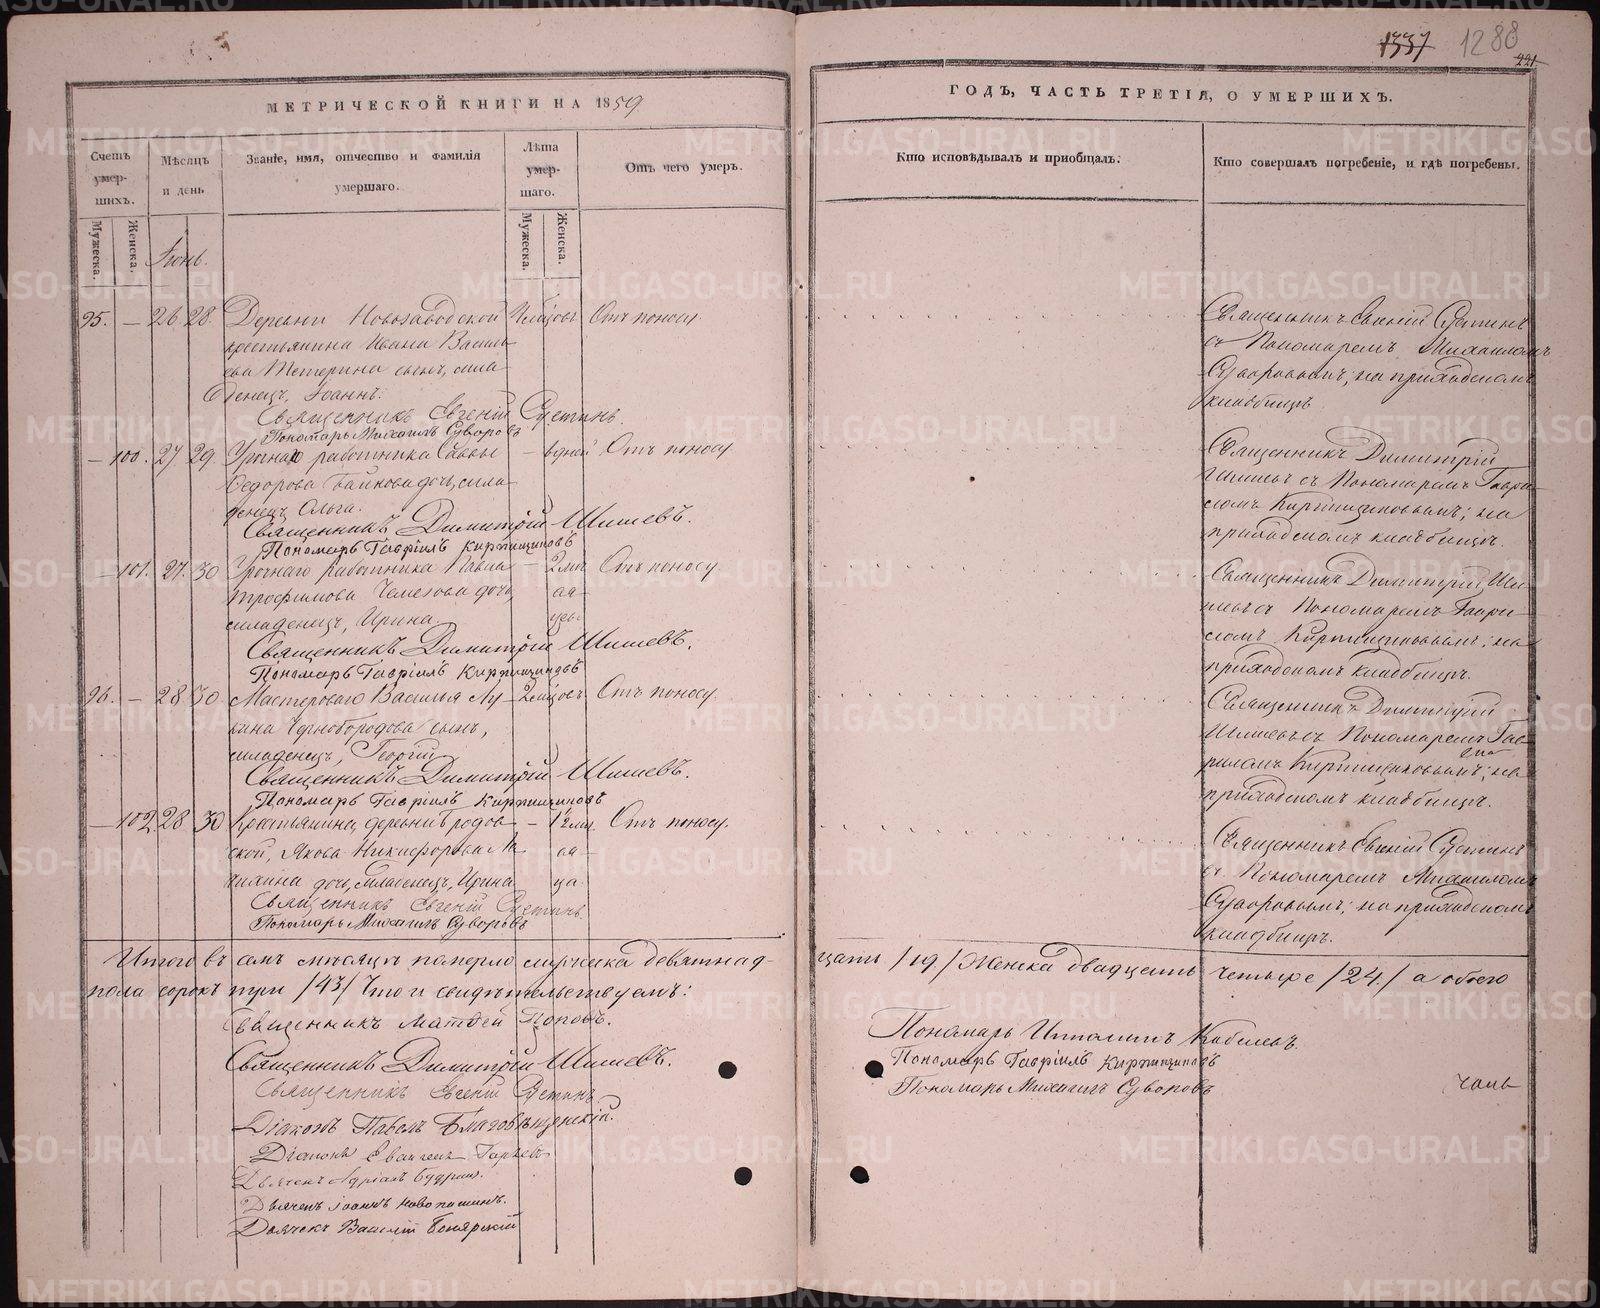 1337 1288
221
МЕТРИЧЕСКОЙ КНИГИ НА 1859
ГОДЪ, ЧАСТЬ ТРЕТІЯ, О УМЕРШИХЪ.
Счетъ умер-
шихъ.
Мѣсяцъ
и день
Званіе, имя, отчество и фамилія
умершаго.
Лѣта
умер-
шаго.
Отъ чего умеръ.
Кто исповѣдывалъ и пріобщалъ.
Кто совершалъ погребеніе, и гдѣ погребены.
Мужеска.
Женска.
Мужеска.
Женска.
Іюнь.
95. — 26 28. Деревни Новозаводской
крестьянина Ивана Василь
ева Тетерина сынъ, мла
денецъ, Іоаннъ.
Отъ поносу
Священникъ Евгеній Сустинъ
съ Пономаремъ Михаиломъ
Суворовымъ; на приходскомъ
кладбищѣ
Священникъ Евгеній Сустинъ.
Пономарь Михаилъ Суворовъ
— 100. 27 29. Урочнаго работника Саввы
Ѳедорова Байкова дочь, мла
денецъ Ольга.
Отъ поносу
Священникъ Димитрій
Шишевъ съ Пономаремъ Гаври
ломъ Кирпищиковымъ; на
приходскомъ кладбищѣ.
Священникъ Димитрій Шишевъ.
Пономарь Гавріилъ Кирпищиковъ
— 101. 27. 30 Урочнаго работника Павла
Трофимова Чемезова дочь,
младенецъ, Ирина
— 2 мѣ
ся
цы
Отъ поносу
Священникъ Димитрій Ши
шевъ съ Пономаремъ Гаври
ломъ Кирпищиковымъ; на
приходскомъ кладбищѣ.
Священникъ Димитрій Шишевъ.
Пономарь Гавріилъ Кирпищиковъ
96. — 28 30 Мастероваго Василья Лу
кина Чернобородова сынъ,
младенецъ, Георгій
Отъ поносу
Священникъ Димитрій
Шишевъ съ Пономаремъ Гав
риломъ Кирпищиковымъ; на
приходскомъ кладбищѣ.
Священникъ Димитрій Шишевъ.
Пономарь Гавріилъ Кирпищиковъ
— 102 28 30 Крестьянина деревни Бродов
ской, Якова Никифорова Ла
чихина дочь, младенецъ, Ирина
Отъ поносу.
Священникъ Евгеній Сустинъ
съ Пономаремъ Михаиломъ
Суворовымъ; на приходскомъ
кладбищѣ.
Священникъ Евгеній Сустинъ.
Пономарь Михаилъ Суворовъ
Итого въ семъ мѣсяцѣ померло мужеска девятнад-
цать /19/ Женска двадцать четыре /24./ а обоего
пола сорокъ три /43/ Что и свидѣтельствуемъ:
Священникъ Матѳей Поповъ.
Священникъ Димитрій Шишевъ.
Священникъ Евгеній Сустинъ
Діаконъ Павелъ Благовѣщенскій.
Діаконъ
Дьячекъ Адріанъ Будринъ.
Дьячекъ Іоаннъ Новопашинъ.
Дьячекъ Василій Боярскій
Пономарь Ипполитъ Кобелевъ.
Пономарь Гавріилъ Кирпищиковъ
Пономарь Михаилъ Суворовъ
часть
METRIKI.GASO-URAL.RU